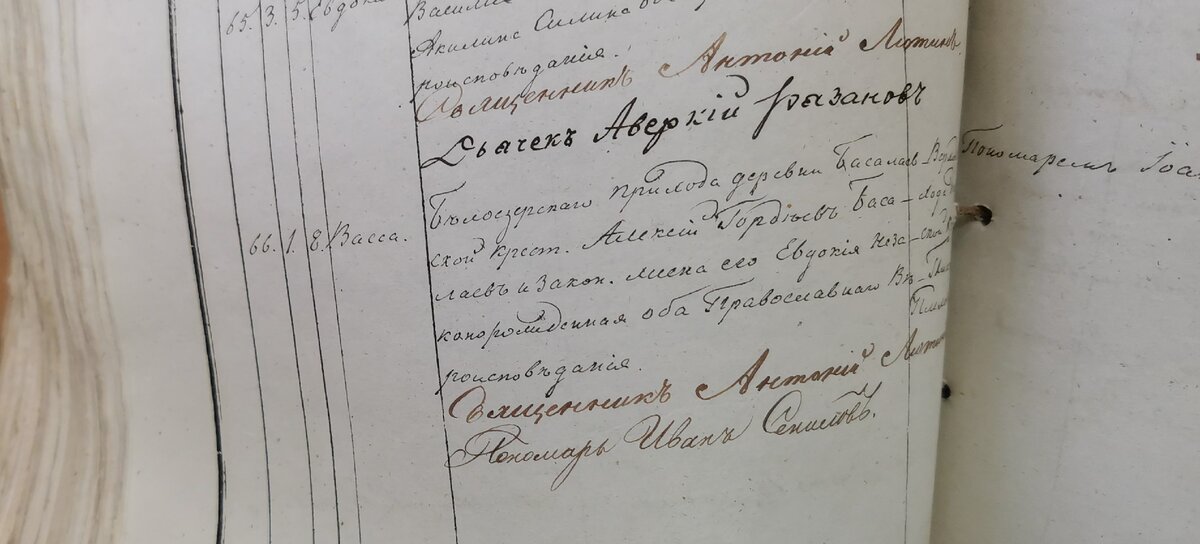 65. 3. 5. Евдокі
Василі
Акилина Силина оба
роисповѣданія.
Священникъ Антоній Лютиков
Дьячекъ Аверкій Грязановъ
Бѣлоозерскаго прихода деревни Басалаев
66. 1. 8. Васса. ской крест. Алексій Гордѣевъ Баса-
лаевъ и закон. жена его Евдокія Неза-
коннорожденная оба Православнаго Вѣ-
роисповѣданія.
Священникъ Антоній
Пономарь Иванъ
Пономаремъ Іоа